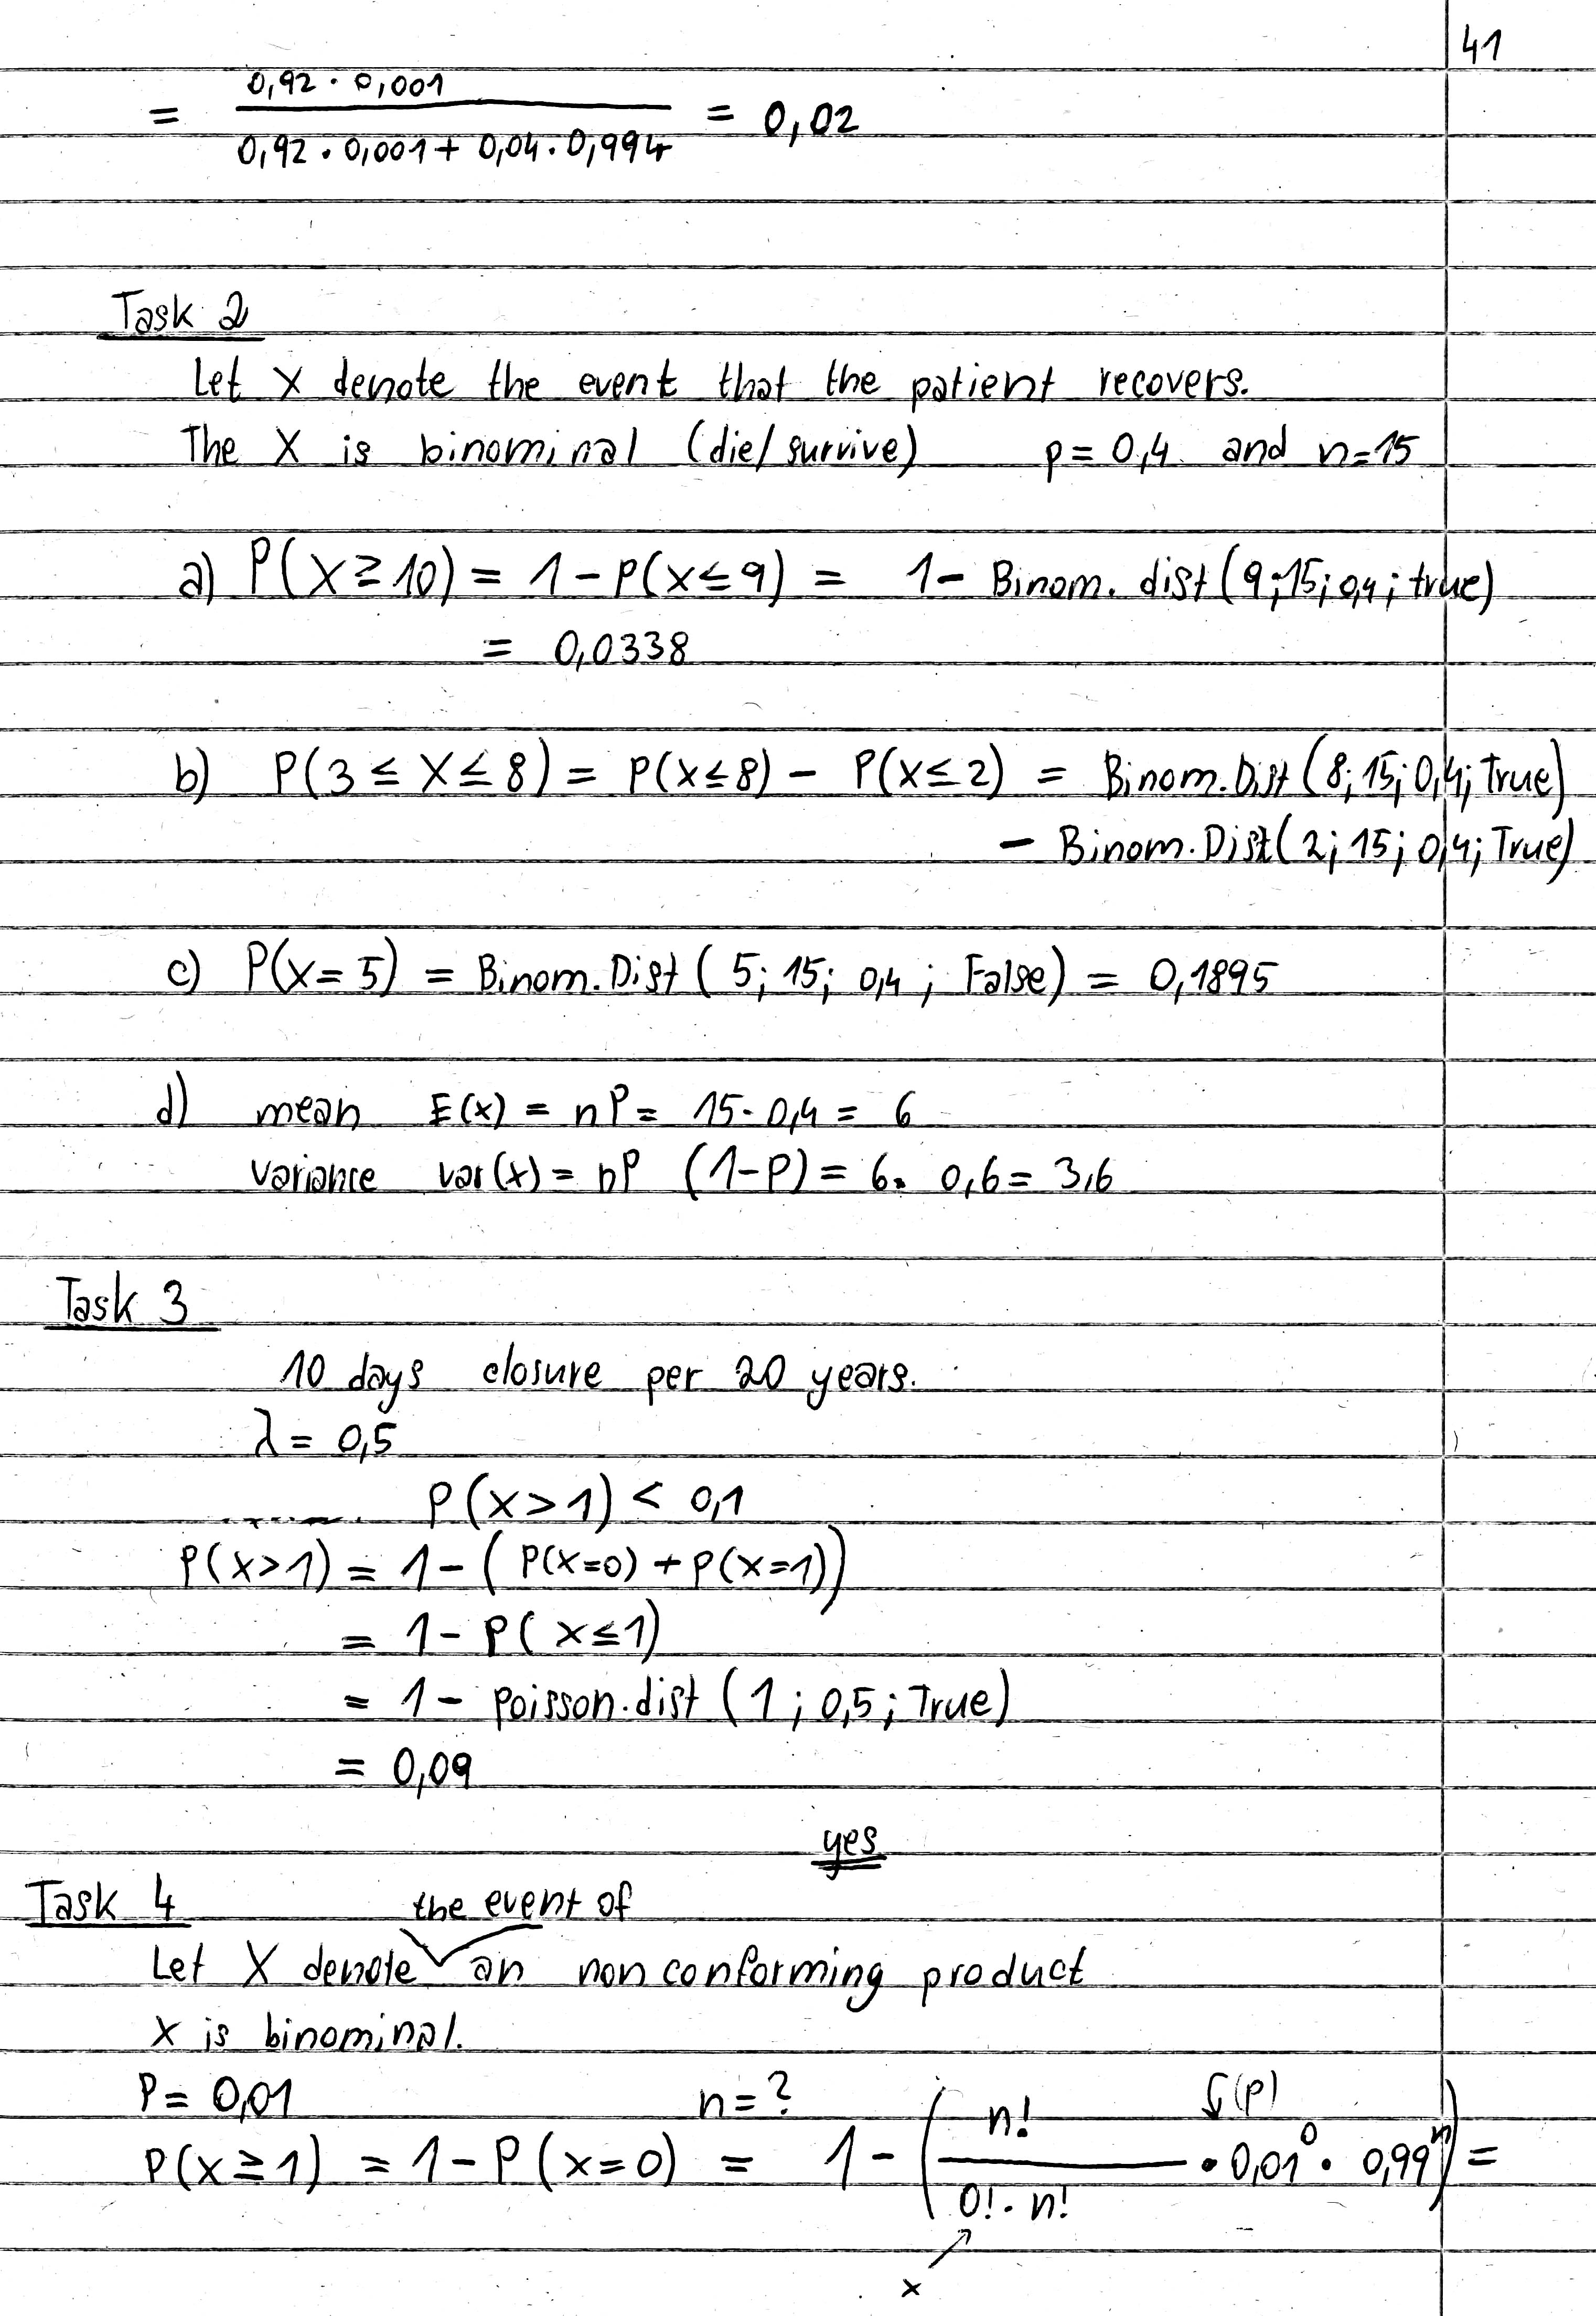 41
= 0,92 · 0,001 / 0,92 · 0,001 + 0,04 · 0,994 = 0,02
Task 2
Let X denote the event that the patient recovers.
The X is binominal (die/survive) p = 0,4 and n=15
a) P(X ≥ 10) = 1 - P(X ≤ 9) = 1 - Binom. dist (9;15; 0,4; true)
= 0,0338
b) P(3 ≤ X ≤ 8) = P(X ≤ 8) - P(X ≤ 2) = Binom.Dist (8; 15; 0,4; True)
- Binom.Dist(2; 15; 0,4; True)
c) P(X = 5) = Binom.Dist (5; 15; 0,4; False) = 0,1895
d) mean E(x) = nP = 15 · 0,4 = 6
variance var(x) = nP (1-P) = 6 · 0,6 = 3,6
Task 3
10 days closure per 20 years.
λ = 0,5
P(X > 1) < 0,1
P(X > 1) = 1 - (P(X=0) + P(X=1))
= 1 - P(X ≤ 1)
= 1 - poisson.dist (1; 0,5; True)
= 0,09
yes
Task 4 the event of
Let X denote an non conforming product
X is binominal.
P = 0,01 n = ? (p)
P(X ≥ 1) = 1 - P(X=0) = 1 - (n! / 0! · n! · 0,01⁰ · 0,99ⁿ) =
x